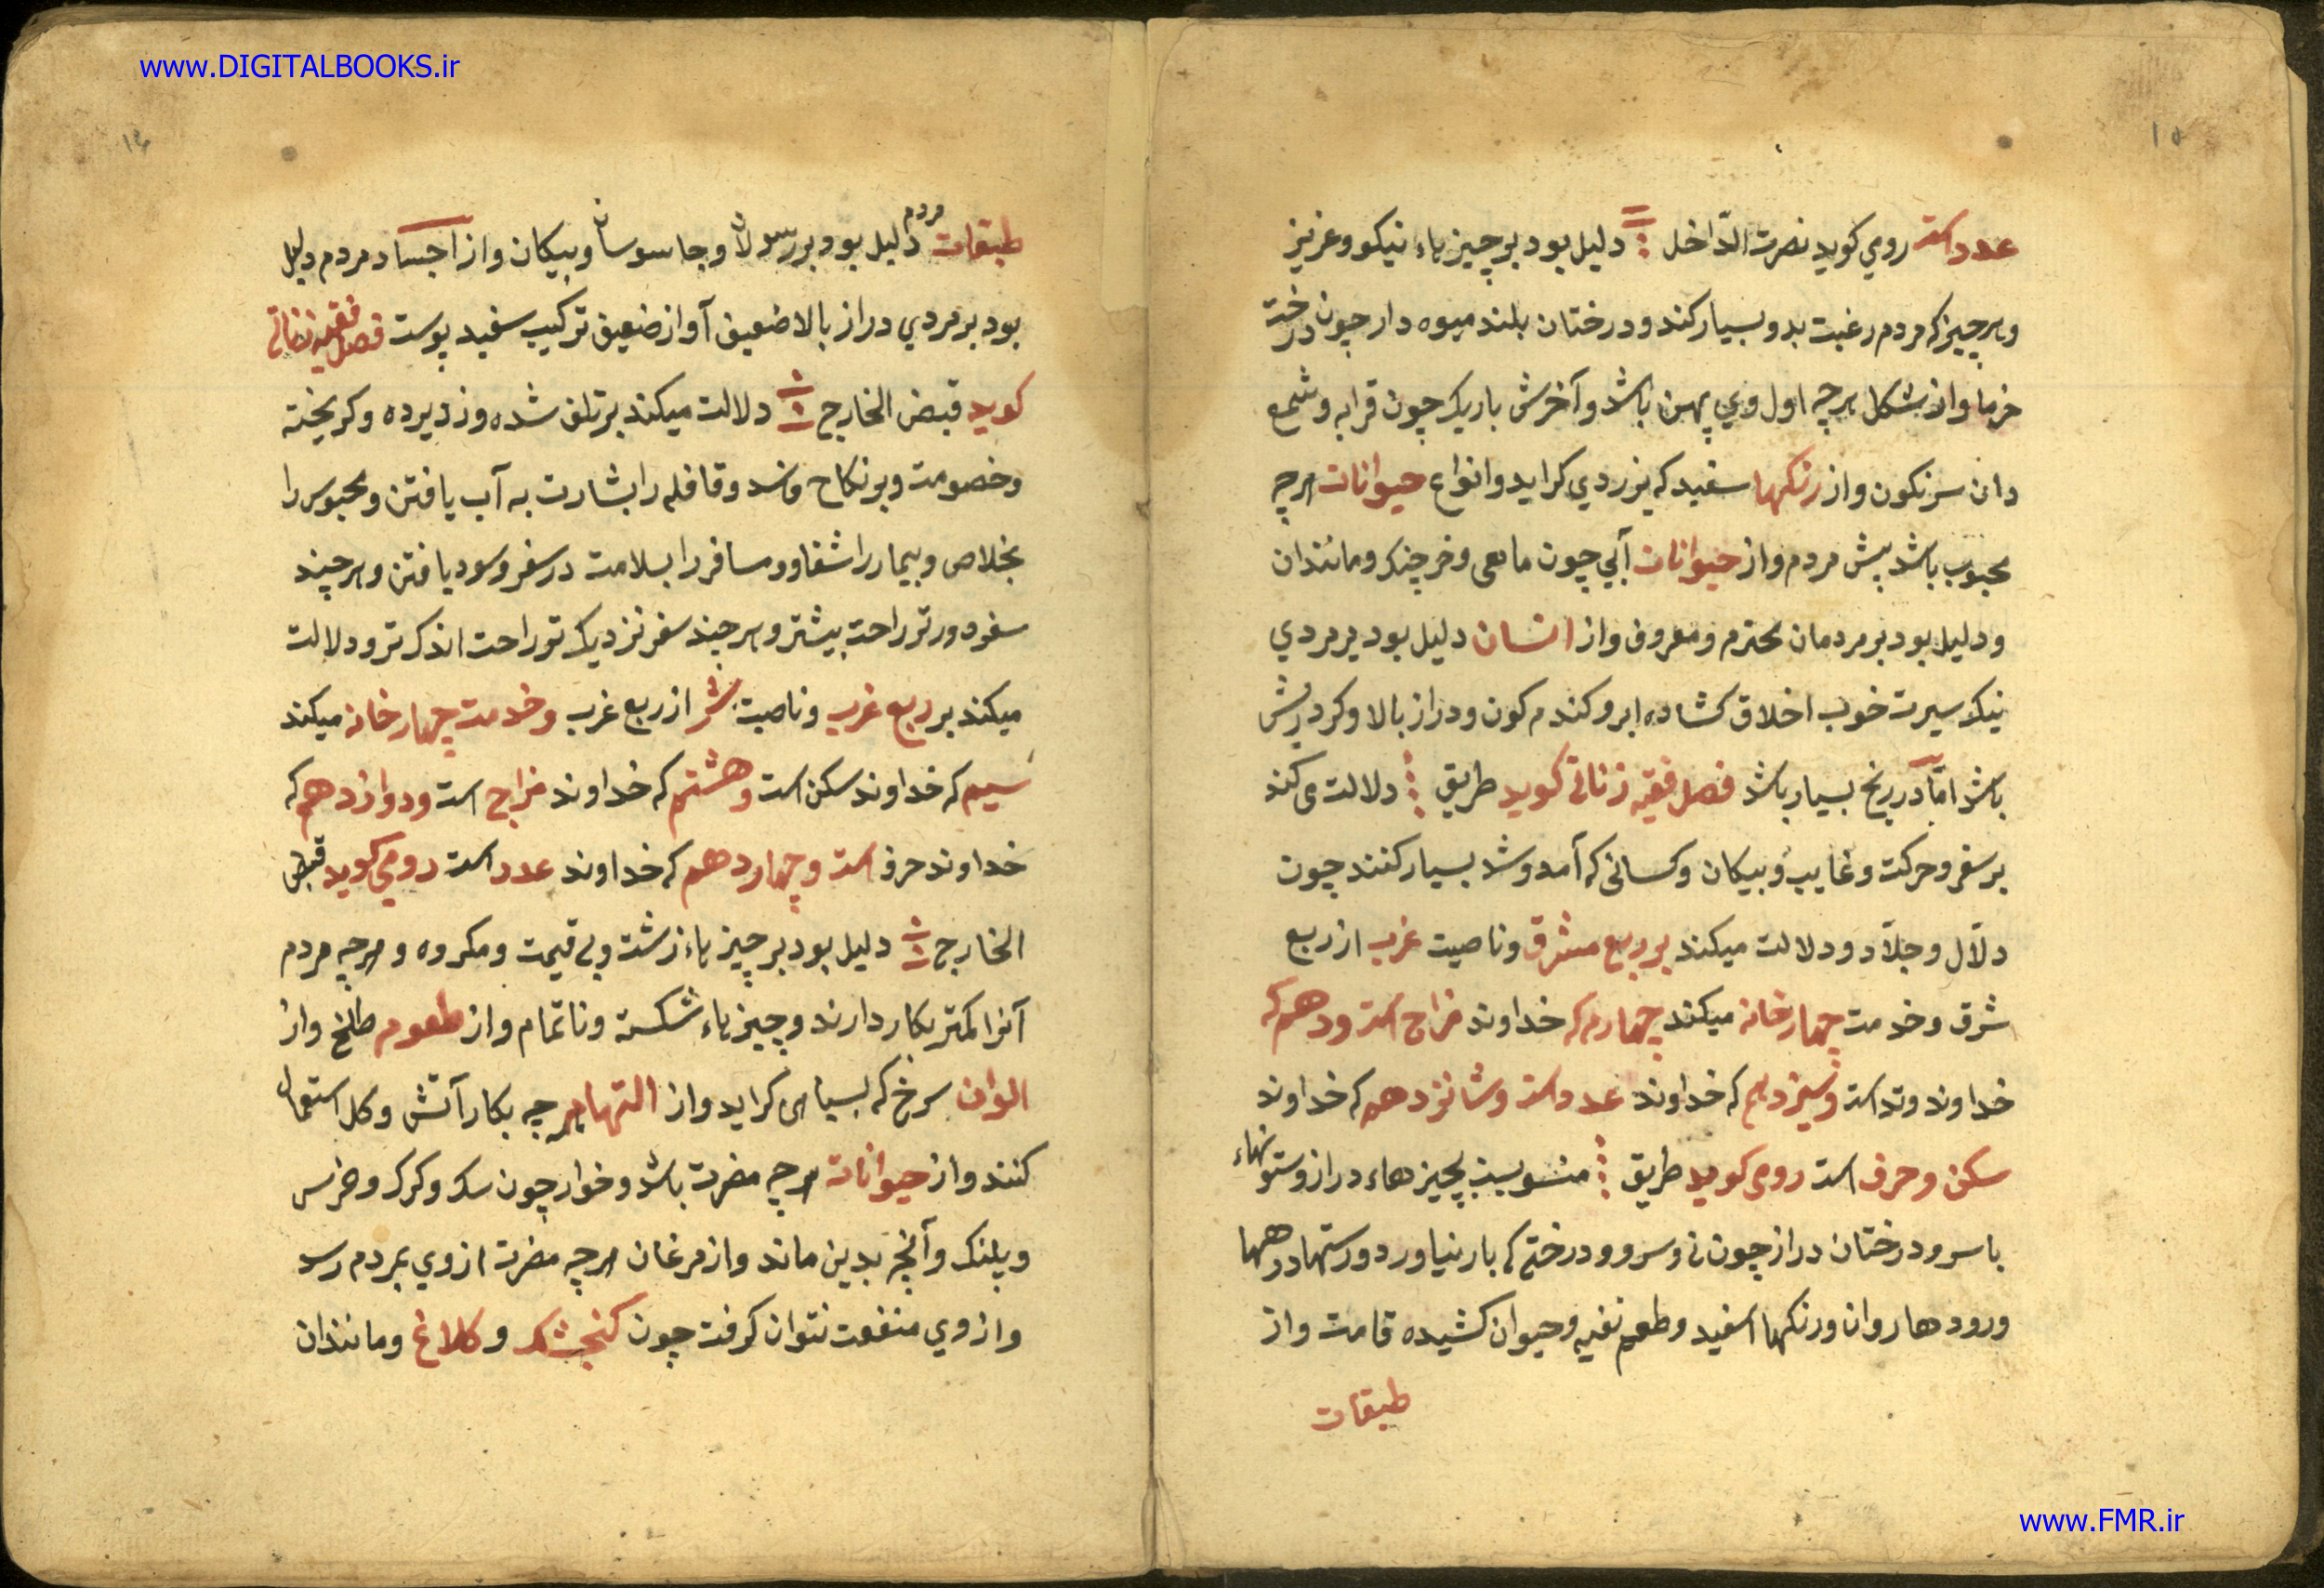 www.DIGITALBOOKS.ir
۱۵
عدد است رومي کويد نصرت الدّاخل دليل بود بر چيزهاء نيکو و عزيز
و هر چيز که مردم رغبت بدو بسيار کند و درختان بلند ميوه دار چون درخت
خرما و از شکل هرچه اول وي پهن باشد و آخرش باريک چون قرابه و شمع
دان سرنکون و از رنکها سفيد که بزردي کرايد و انواع حيوانات هرچه
محبوب باشد پيش مردم و از حيوانات آبي چون ماهی و خرچنک و مانندان
و دليل بود بر مردمان محترم و معروف و از انسان دليل بود بر مردي
نيک سيرت خوب اخلاق کشاده ابرو کندم کون و دراز بالا و کرد ريش
باشد امّا در رنج بسيار باشد فصل فقيه زناتی کويد طريق دلالت می کند
بر سفر و حرکت و غايب و بيکان و کسانی که آمد و شد بسيار کنند چون
دلاّل و جلاّد و دلالت ميکند بر ربع مشرق و ناصيت غرب از ربع
شرق و خدمت چهار خانه ميکند چهارم که خداوند مزاج است و دهم که
خداوند وتد است و سيزدهم که خداوند عدد است و شانزدهم که خداوند
سکن و حرف است رومی کويد طريق منسوبست بچيزهاء دراز و ستونهاء
با سر و درختان دراز چون نی و سرو و درختی که بار نياورد و رستها و رهها
و رودها روان و رنکها اسفيد و طعم نفيه و حيوان کشيده قامت و از
طبقات
۱۶
طبقات مردم دليل بود بر رسولان و جاسوسان و بيکان و از اجساد مردم دليل
بود بر مردي دراز بالا ضعيف آواز ضعيف ترکيب سفيد پوست فصل فقيه زناتی
کويد قبض الخارج دلالت ميکند بر تلف شده و دزديده و کريخته
و خصومت و بر نکاح فاسد و قافله را بشارت به آب يافتن و محبوس را
بخلاص و بيمار را شفا و مسافر را بسلامت در سفر و سود يافتن و هرچند
سفر دورتر راحت بيشتر و هرچند سفر نزديک تر راحت اندک تر و دلالت
ميکند بر ربع غرب و ناصيت شر از ربع غرب و خدمت چهار خانه ميکند
سيم که خداوند سکن است و هشتم که خداوند مزاج است و دوازدهم که
خداوند حرف است و چهاردهم که خداوند عدد است رومی کويد قبض
الخارج دليل بود بر چيزهاء زشت و بی قيمت و مکروه و هرچه مردم
آنرا کمتر بکار دارند و چيزهاء شکسته و ناتمام و از طعوم طلخ و از
الوان سرخ که بسياهی کرايد و از التها هرچه بکار آتش و کل استعمال
کنند و از حيوانات هرچه مضرت باشد و خوار چون سک و کرک و خرس
و پلنک و آنچه بدين ماند و از مرغان هرچه مضرت از وي بمردم رسد
و از وي منفعت نتوان کرفت چون کنجشک و کلاغ و مانندان
www.FMR.ir